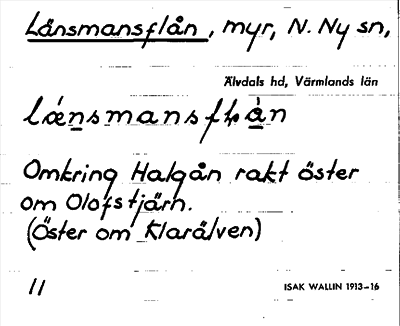 Länsmansflån, myr, N. Ny sn,
Älvdals hd, Värmlands län
lǽnsmansfɫån
Omkring Halgån rakt öster
om Olofstjärn.
(Öster om Klarälven)
11
ISAK WALLIN 1913–16